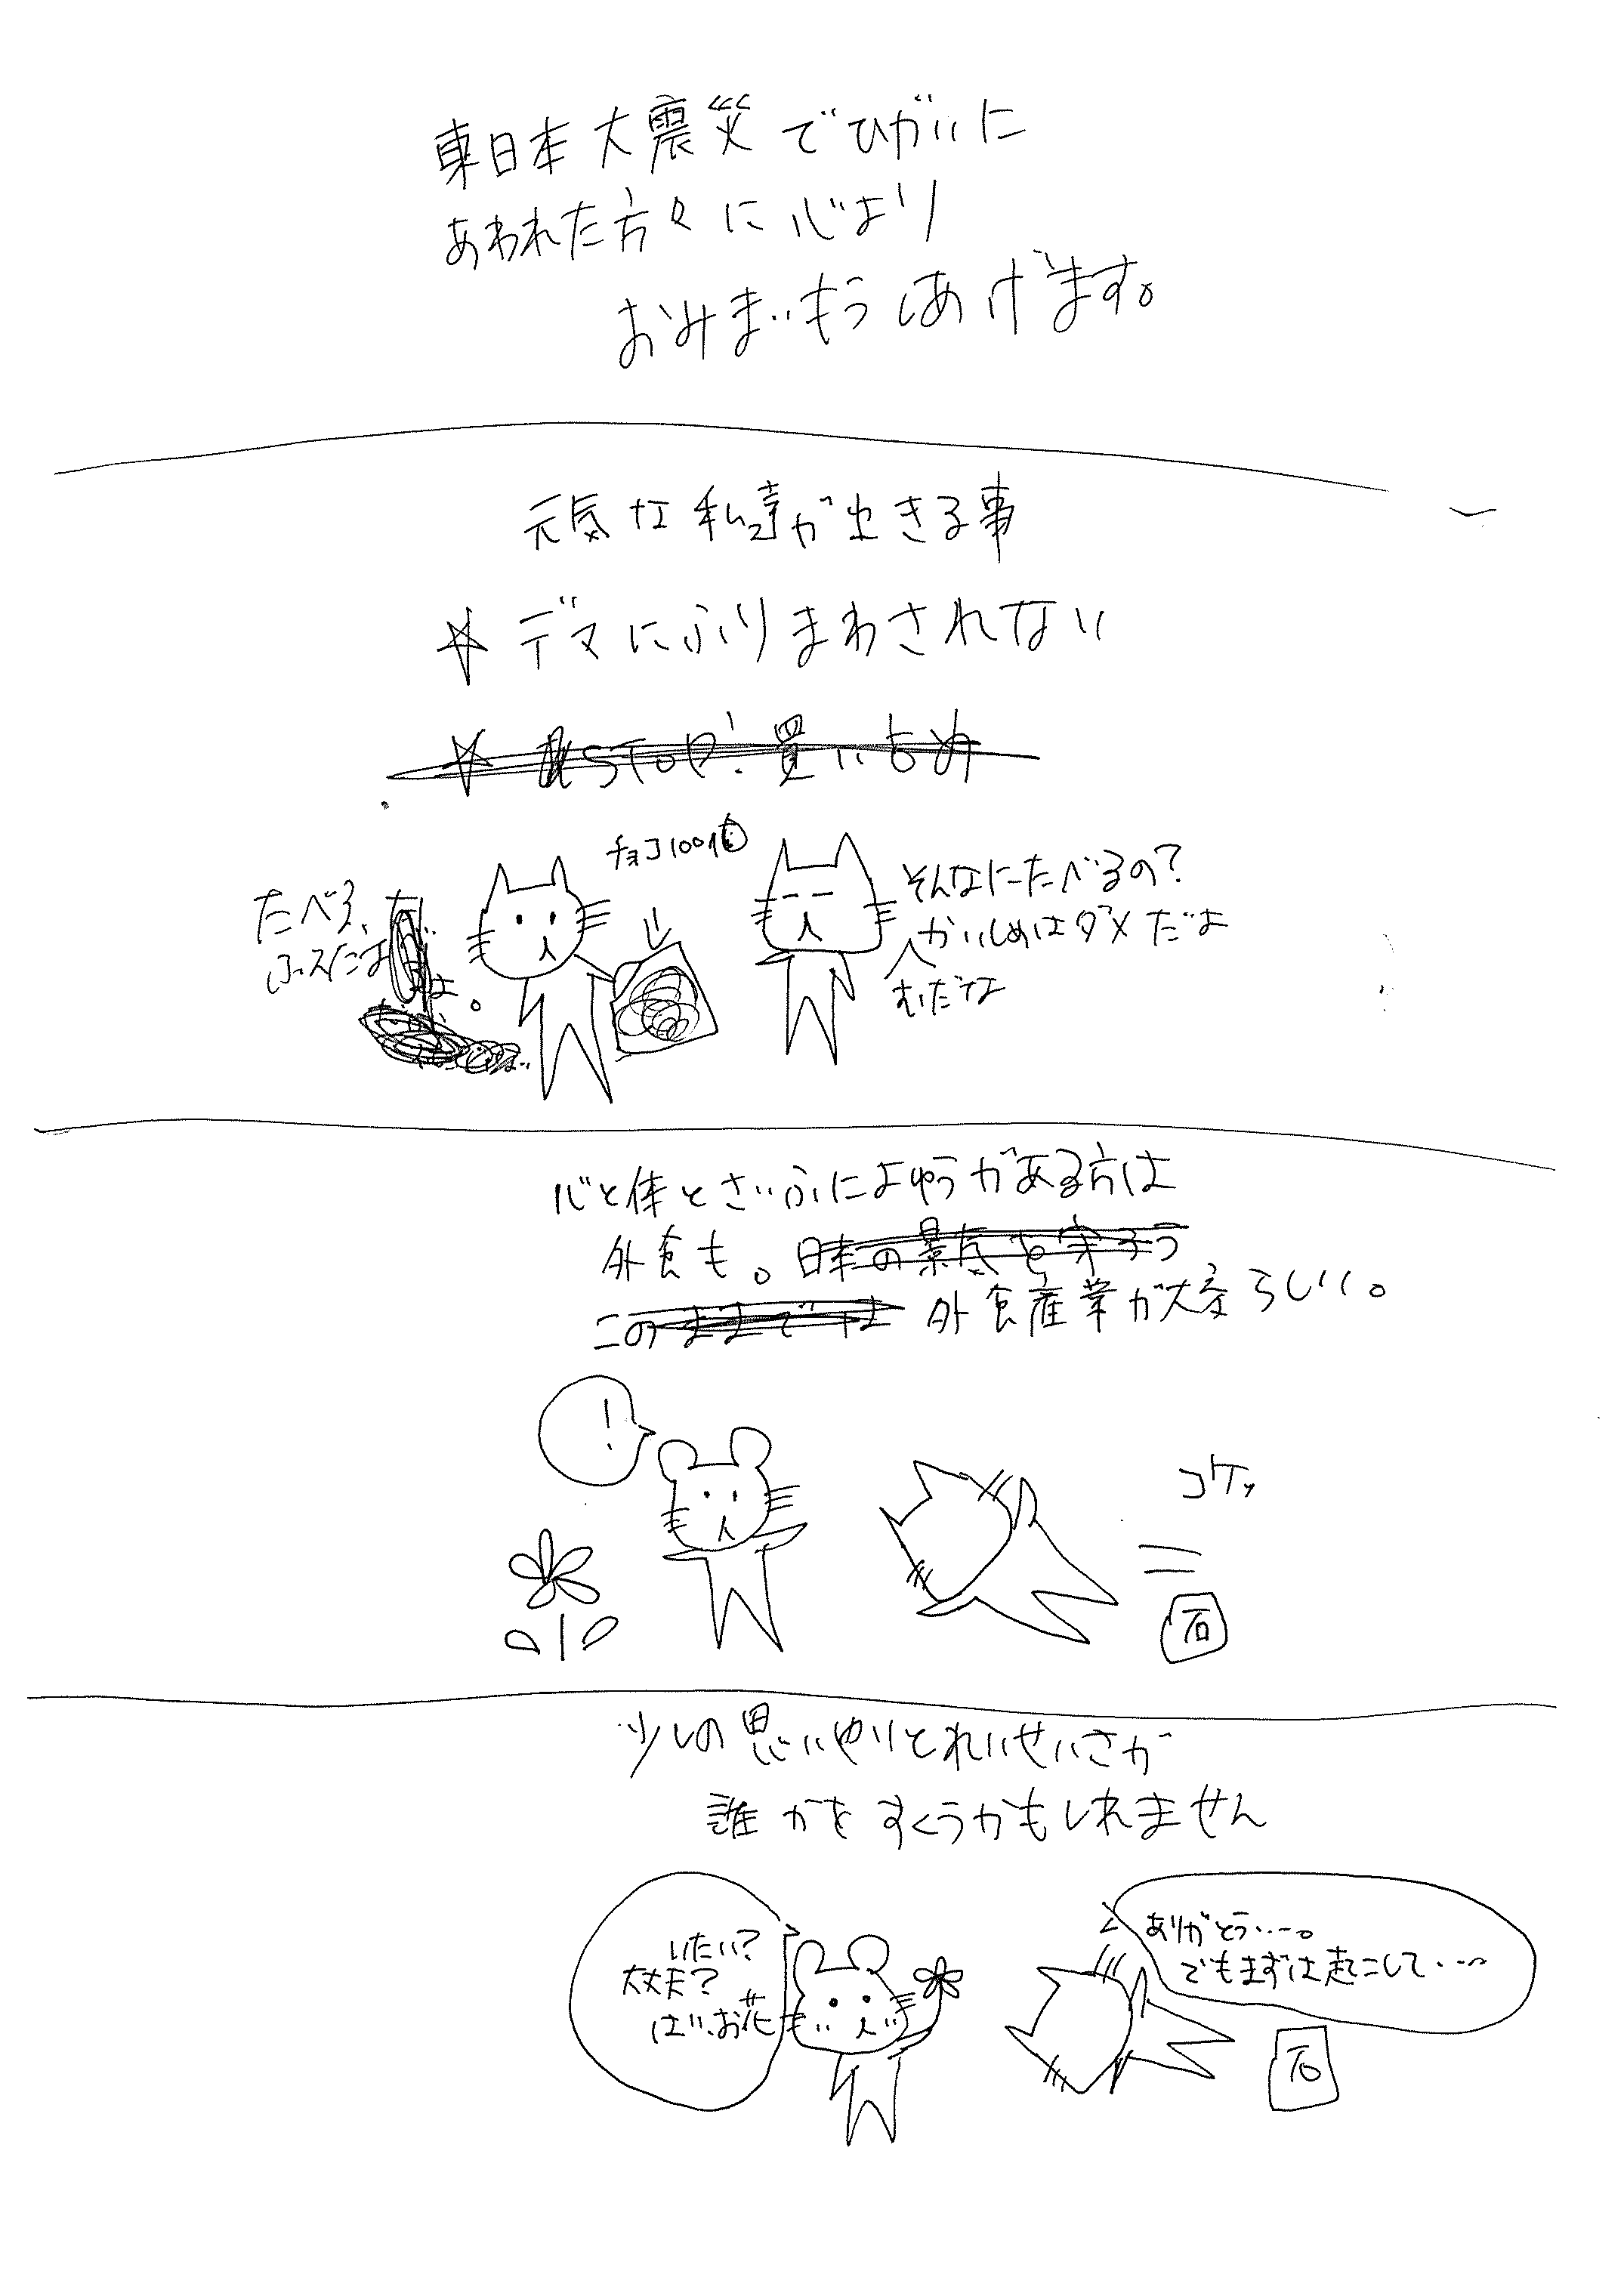 東日本大震災でひがいに
あわれた方々に心より
おみまいもうしあげます。
元気な私達が出きる事
☆ デマにふりまわされない
☆ STOP! 買い占め
チョコ100個
たべる、
ふスには
よ。
そんなにたべるの?
かいしめはダメだよ
むだな
心と体とさいふによゆうがある方は
外食も。日本の景気を守ろう
このままでは 外食産業が大変らしい。
!
コケッ
石
少しの思いやりとれいせいさが
誰かをすくうかもしれません
いたい?
大丈夫?
はい、お花
ありがとう・・ー。
でもまずは起こして・・ーー
石